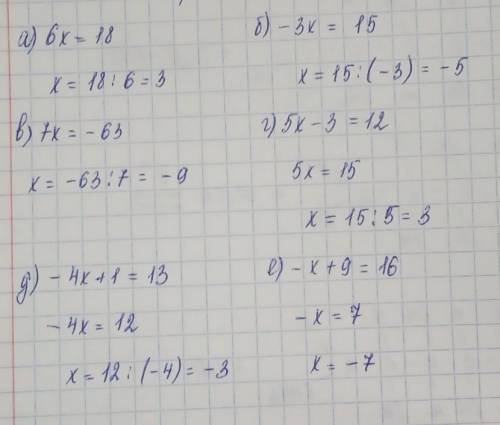 а) 6x = 18
x = 18 : 6 = 3
б) - 3x = 15
x = 15 : (-3) = - 5
в) 7x = - 63
x = - 63 : 7 = - 9
г) 5x - 3 = 12
5x = 15
x = 15 : 5 = 3
д) - 4x + 1 = 13
- 4x = 12
x = 12 : (-4) = - 3
е) - x + 9 = 16
- x = 7
x = - 7